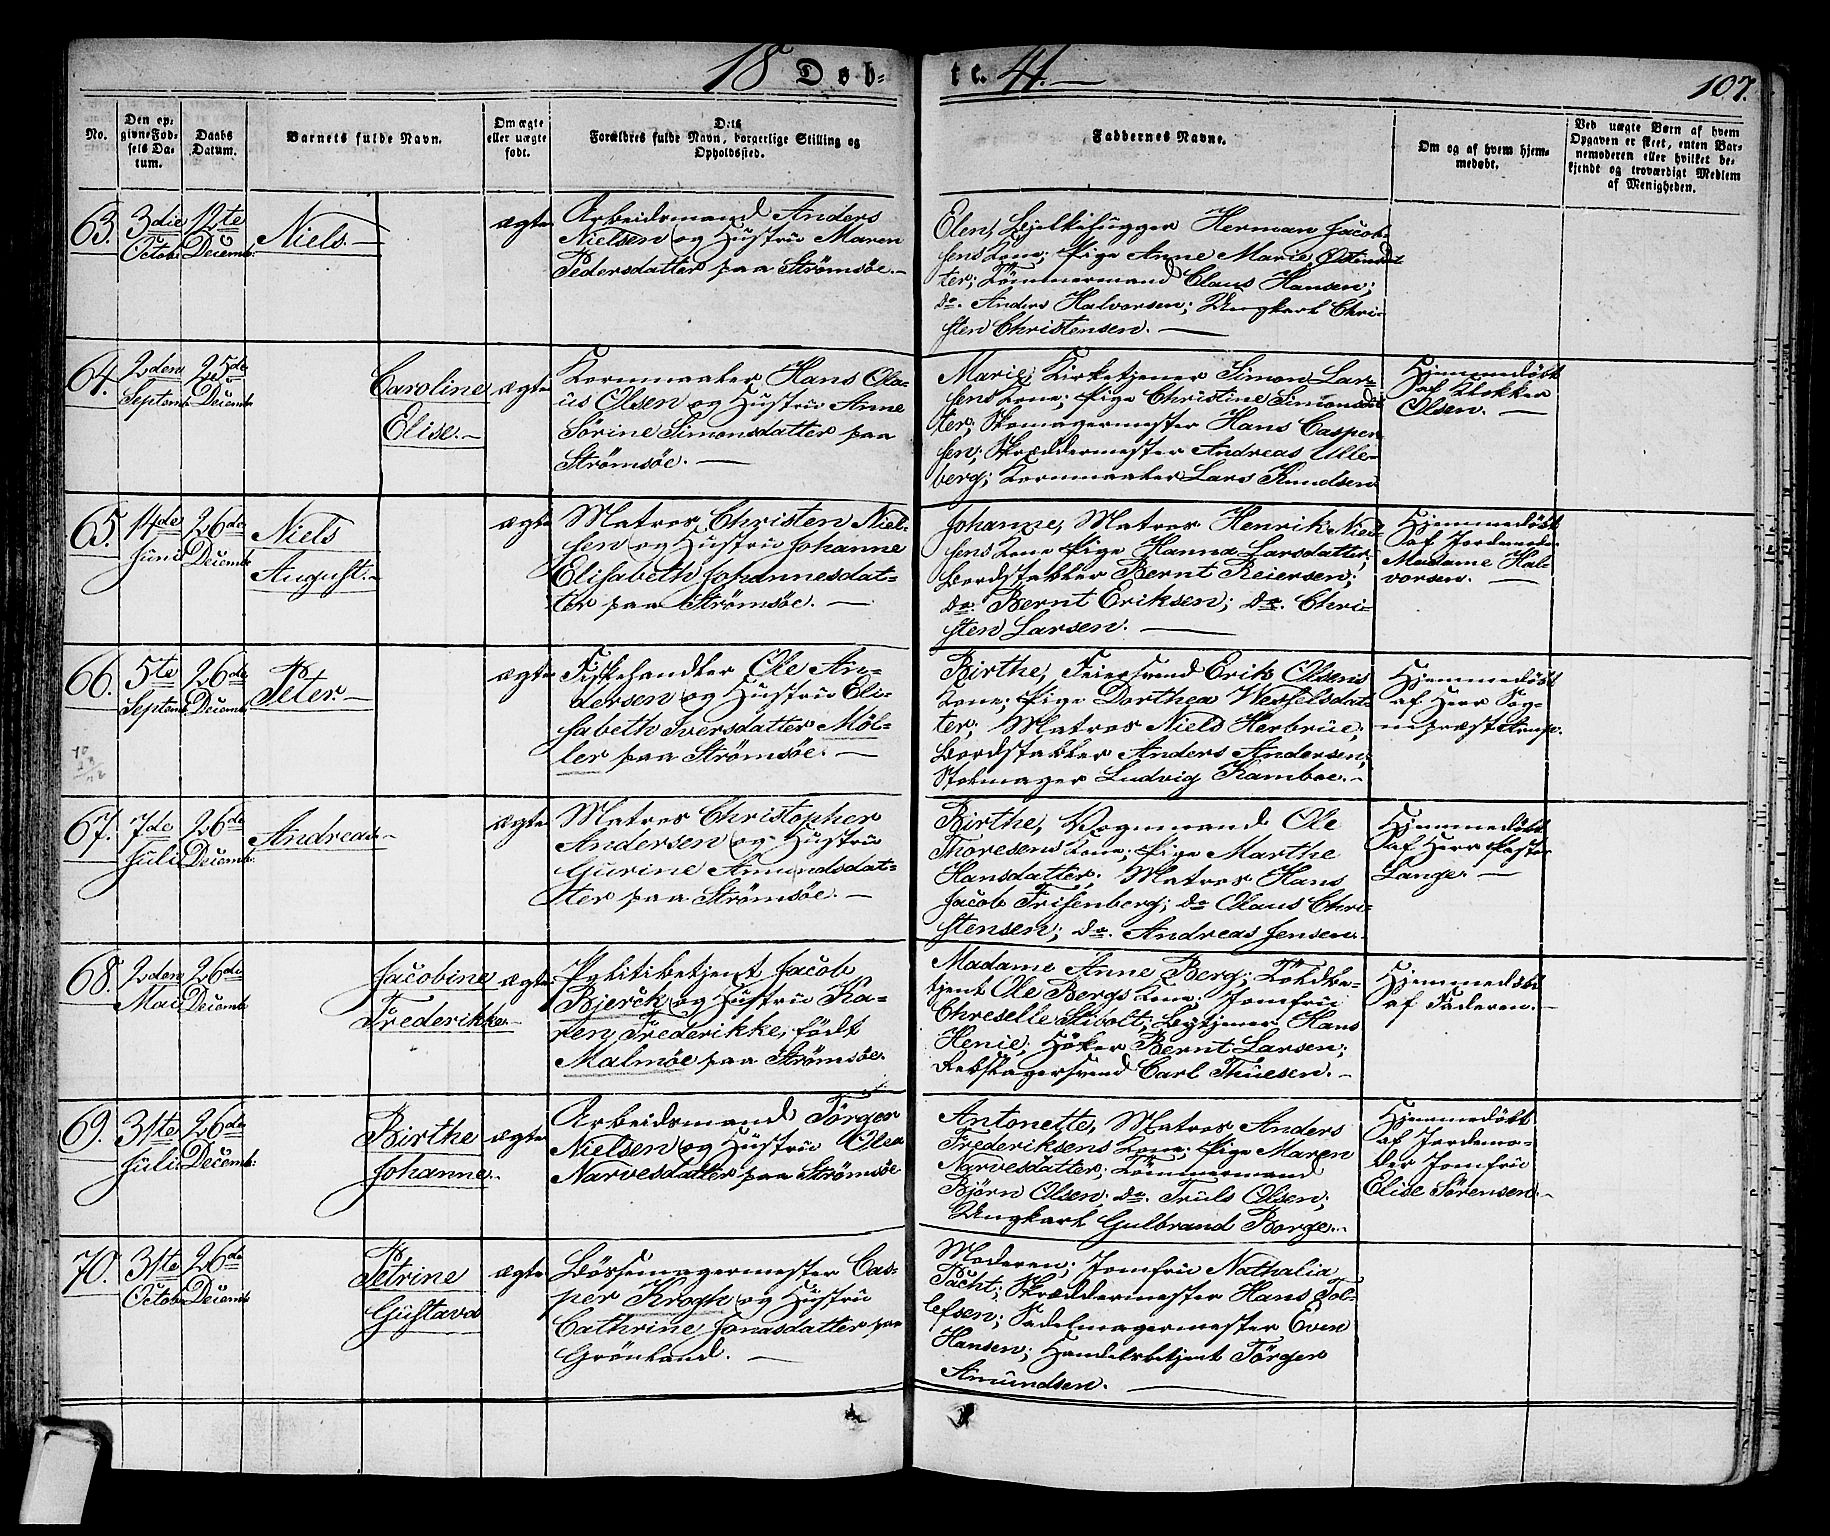 18 Døb-
te. 41.
107.
No.
Den op-
givne Fød-
sels Da-
tum.
Daabs
Datum.
Barnets fulde Navn.
Om ægte
eller uægte
født.
D:ts
Forældres fulde Navn, borgerlige Stilling og
Opholdssted.
Faddernes Navne.
Om og af hvem hjem-
medøbt.
Ved uægte Børn af hvem
Opgaven er skeet, enten Bar-
nemoderen eller hvilket be-
kjendt og troværdigt Medlem
af Menigheden.
63. 3die Octob: 12te Decemb: Niels. ægte
Arbeidsmand Anders
Nielsen og Hustrü Maren
Pedersdatter paa Strömsöe.
Elen, Herman Jacob-
sens Kone; Pige Anne Marie
ter; Tömmermand Claus Hansen;
do. Anders Halvorsen; Ungkarl Chri-
sten Christensen.
64. 2den Septemb: 25de Decemb: Caroline Elise. ægte
Kornmaaler Hans Ola-
üs Olsen og Hustrü Anne
Sörine Simonsdatter paa
Strömsöe.
Marie, Kirketjener Simon Lar-
sens Kone; Pige Christine Simonsdat-
ter; Skomagermester Hans Casper-
sen; Skræddermester Andreas Ulle-
berg; Kornmaaler Lars Knudsen
Hjemmedöbt
af Klokker
Olsen.
65. 14de Jüni 26de Decemb: Niels August. ægte
Matros Christen Niel-
sen og Hustrü Johanne
Elisabeth Johannesdat-
ter paa Strömsöe.
Johanne, Matros Henrik Niel-
sens Kone; Pige Hanna Larsdatter;
Bordstabler Bernt Reiersen;
do. Bernt Eriksen; do. Chri-
sten Larsen.
Hjemmedöbt
af Jordemoder
Madame Hal-
vorsen.
66. 5te Septemb: 26de Decemb: Peter. ægte
Fiskehandler Ole An-
dersen og Hustrü Eli-
sabeth Iversdatter Möl-
ler paa Strömsöe.
Birthe, Feiersvend Erik Olsens
Kone; Pige Dorthea Wesselsdat-
ter; Matros Niels Herbrüe;
Bordstabler Anders Andersen;
Stolmager Ludvig Kamboe.
Hjemmedöbt
af Herr Sog-
nepræst
67. 7de Juli 26de Decemb: Andreas. ægte
Matros Christopher
Andersen og Hustrü
Gurine Amundsdat-
ter paa Strömsöe.
Birthe, Vognmand Ole
Thoresens Kone; Pige Marthe
Hansdatter; Matros Hans
Jacob Frisenberg; do Olaus Chri-
stensen; do. Andreas Jensen.
Hjemmedöbt
af Herr Pastor
Lange.
68. 2den Mai 26de Decemb: Jacobine Frederikke. ægte
Politibetjent Jacob
Bjerck og Hustrü Ka-
ren Frederikke, födt
Malmöe paa Strömsöe.
Madame Anne Berg; Toldbe-
tjent Ole Bergs Kone; Jomfrü
Chreselle Sibolt; Hans
Henie; Höker Bernt Larsen;
Rebslagersvend Carl Thüesen.
Hjemmedöbt
af Faderen.
69. 31te Juli 26de Decemb: Birthe Johanne. ægte
Arbeidsmand Törger
Nielsen og Hustrü Olea
Narvesdatter paa Strömsöe
Antonette, Matros Anders
Frederiksens Kone; Pige Maren
Narvesdatter; Tömmermand
Björn Olsen; do. Truls Olsen;
Ungkarl Gulbrand Borge.
Hjemmedöbt
af Jordemo-
der Jomfrü
Elise Sörensen.
70. 31te Octob: 26de Decemb: Petrine Güstava ægte
Bössemagermester Cas-
per Krogh og Hustrü
Cathrine Jonasdatter paa
Grönland.
Moderen; Jomfrü Nathalia
Pacht; Skræddermester Hans Tol-
lefsen; Sadelmagermester Even
Hansen; Handelsbetjent Törger
Amündsen.